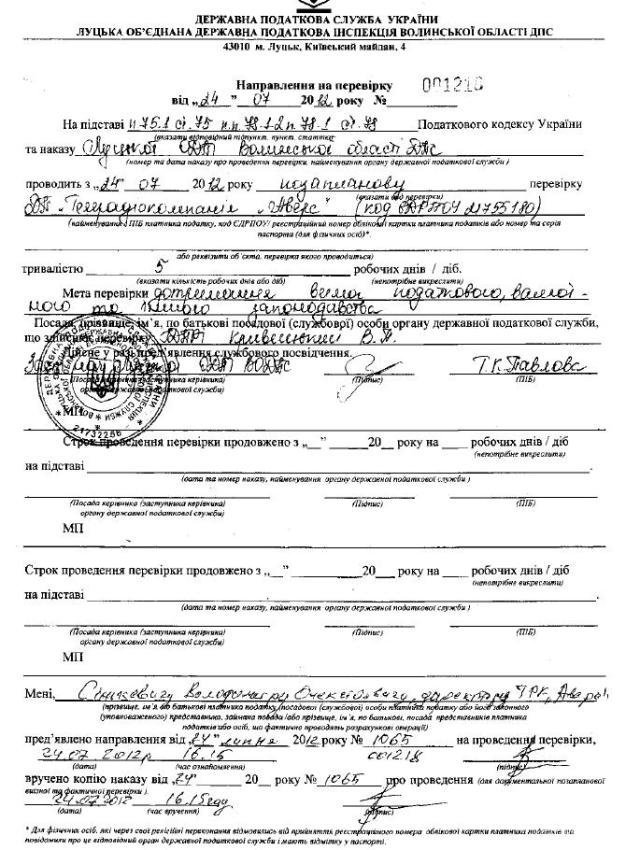 ДЕРЖАВНА ПОДАТКОВА СЛУЖБА УКРАЇНИ
ЛУЦЬКА ОБ'ЄДНАНА ДЕРЖАВНА ПОДАТКОВА ІНСПЕКЦІЯ ВОЛИНСЬКОЇ ОБЛАСТІ ДПС
43010 м. Луцьк, Київський майдан, 4
Направлення на перевірку
від „24" 07 2012 року № 001218
На підставі п 75.1 ст. 75 п.п. 78.1.2 п. 78.1 ст. 78 Податкового кодексу України
(вказати відповідний підпункт, пункт, статтю)
та наказу Луцької ОДПІ Волинської області ДПС
(номер та дата наказу про проведення перевірки, найменування органу державної податкової служби)
проводить з „24" 07 2012 року позапланову перевірку
(вказати вид перевірки)
ДП „Телерадіокомпанія „Аверс" (код ЄДРПОУ 21755180)
(найменування/ ПІБ платника податку, код ЄДРПОУ/ реєстраційний номер облікової картки платника податків або номер та серія
паспорта (для фізичних осіб)*.
або реквізити об'єкта, перевірка якого проводиться)
тривалістю 5 робочих днів / діб.
(вказати кількість робочих днів або діб) (непотрібне викреслити)
Мета перевірки дотримання вимог податкового, валют-
ного та іншого законодавства
Посада, прізвище, ім'я, по батькові посадової (службової) особи органу державної податкової служби,
що здійснює перевірку
Дійсне у разі пред'явлення службового посвідчення.
Т.К. Павлова
(Посада керівника (заступника керівника) (Підпис) (ПІБ)
органу державної податкової служби)
МП
21732286
Строк проведення перевірки продовжено з „__" 20__ року на робочих днів / діб
(непотрібне викреслити)
на підставі
(дата та номер наказу, найменування органу державної податкової служби)
(Посада керівника (заступника керівника) (Підпис) (ПІБ)
органу державної податкової служби)
МП
Строк проведення перевірки продовжено з „__" 20__ року на робочих днів / діб
(непотрібне викреслити)
на підставі
(дата та номер наказу, найменування органу державної податкової служби)
(Посада керівника (заступника керівника) (Підпис) (ПІБ)
органу державної податкової служби)
МП
Мені, Володимиру Олексійовичу, директору ТРК „Аверс",
(прізвище, ім'я, по батькові платника податку/посадової (службової) особи платника податку або його законного
(уповноваженого) представника, займана посада/або прізвище, ім'я, по батькові, посада представників платника
податків або осіб, що фактично проводять розрахункові операції)
пред'явлено направлення від „24" липня 2012 року № 1065 на проведення перевірки,
24.07 2012р 16.15 001218
(дата) (час ознайомлення) (підпис)
вручено копію наказу від „24" 20__ року № 1065 про проведення (для документальної позапланової
виїзної та фактичної перевірки).
24.07.2012 16.15 год
(дата) (час вручення) (підпис)
* Для фізичних осіб, які через свої релігійні переконання відмовились від прийняття реєстраційного номера облікової картки платника податків та
повідомили про це відповідний орган державної податкової служби і мають відмітку у паспорті.